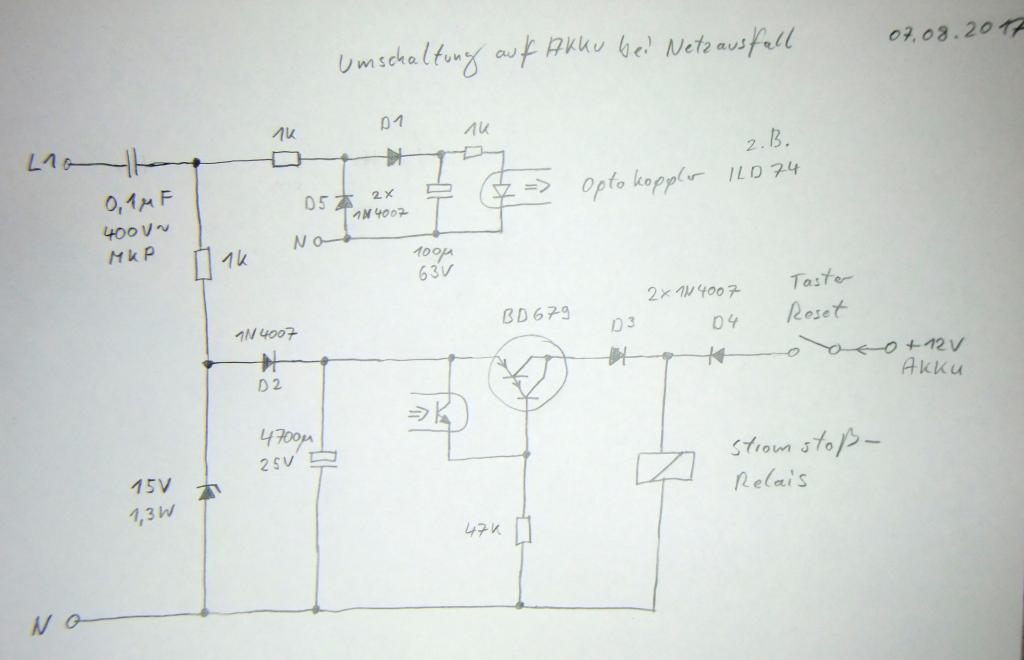 Umschaltung auf Akku bei Netzausfall
07.08.2017
L1
0,1µF
400V~
MKP
1k
D1
1k
D5
2x
1N4007
N
100µ
63V
Optokoppler
z.B.
ILD74
1k
1N4007
D2
4700µ
25V
15V
1,3W
BD679
47K
2x1N4007
D3
D4
Taster
Reset
+12V
AKKU
Stromstoß-
Relais
N